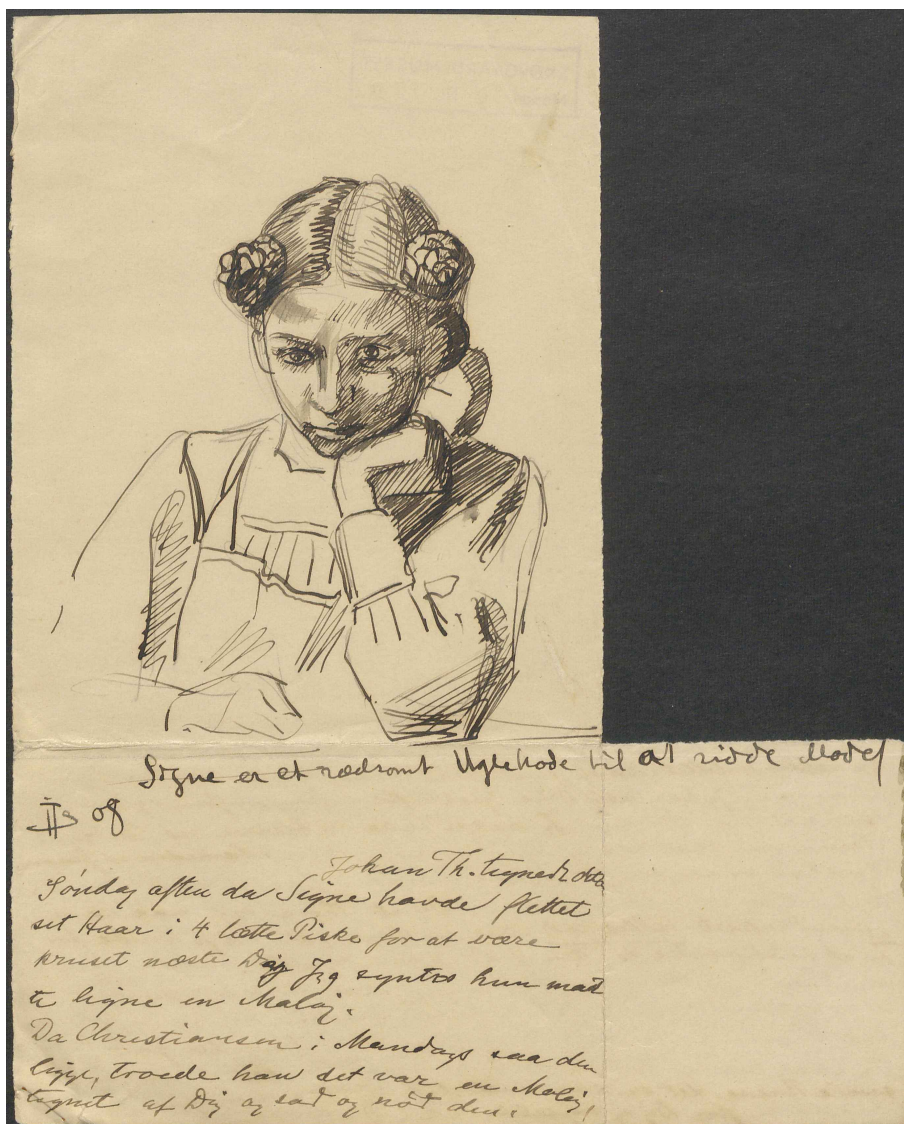 Signe er et rædsomt Uglehode til at sidde Model
08
Johan Th. tegnede dette
Søndag aften da Signe havde flettet
sit Haar i 4 tætte Piske for at være
kruset næste Dag Jeg syntes hun
te ligne en Malaj.
Da Christiansen i Mandags saa den
ligge, troede han det var en Malaj,
tegnet af Dig og sad og nød den!